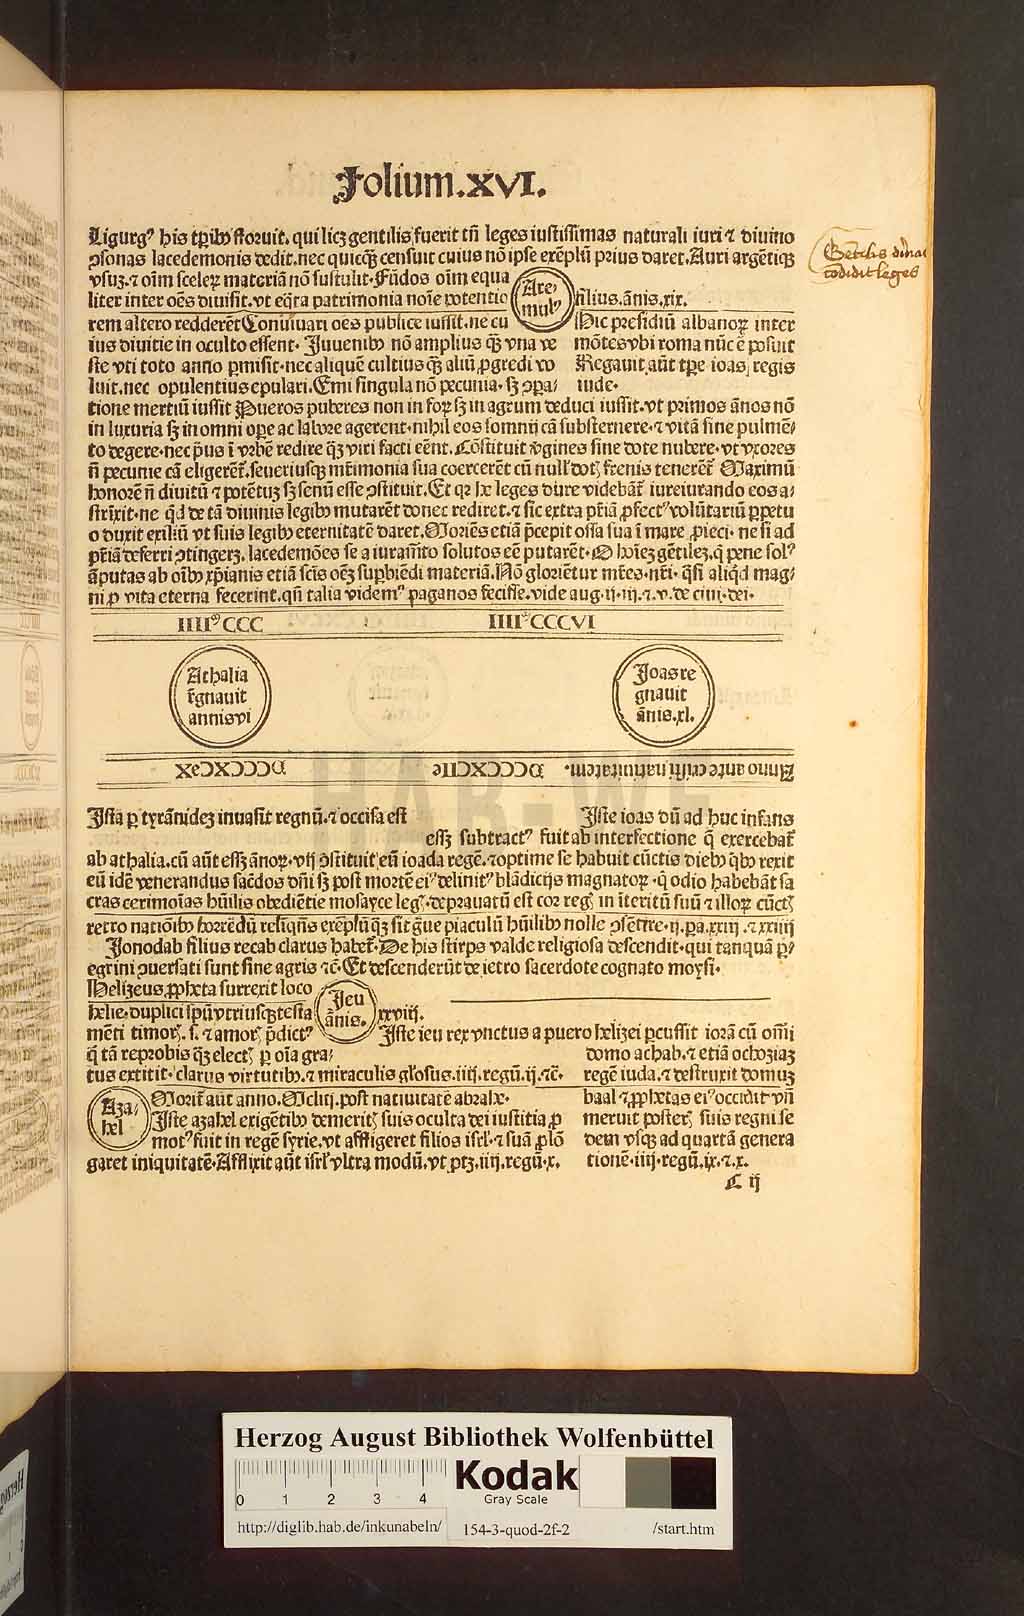 Folium.XVI.
Ligurgꝰ his tꝑibꝰ floruit. qui licꝫ gentilis fuerit tñ leges iustissimas naturali iuri ⁊ diuino
ↄsonas lacedemonis dedit. nec quicqꝫ censuit cuius nō ipse exēplū prius daret. Auri argētiqꝫ
vsuꝫ. ⁊ oīm scelerꝝ materiā nō sustulit. Fūdos oīm equa
liter inter oēs diuisit. vt eq̄ta patrimonia noīe potentio
rem altero redderēt Conuiuari oēs publice iussit. ne cu
ius diuitie in occulto essent. Iuuenibꝰ nō amplius qꝫ vna ve
ste vti toto anno ꝑmisit. nec aliquē cultius qꝫ aliū ꝓgredi vo
luit. nec opulentius epulari. Emi singula nō pecunia. sꝫ ↄpa/
Are/
mulꝰ
filius. ānis. xix.
Hic presidiū albanoꝝ inter
mōtes vbi roma nūc ē posuit
Regauit aūt tꝑe ioas regis
iude.
tione mertiū iussit Pueros puberes non in forꝫ sꝫ in agrum deduci iussit. vt primos ānos nō
in luxuria sꝫ in omni oꝑe ac labore agerent. nihil eos somnij cā substernere. ⁊ vitā sine pulmē/
to degere. nec pꝰus ī vrbē redire qꝫ viri facti eēnt. Cōstituit v̄gines sine dote nubere. vt vxores
ñ pecunie cā eligerēt. seueriusqꝫ mr̄imonia sua coercerēt cū null dotꝭ frenis tenerēt Maximū
honorē ñ diuitū ⁊ potētuꝫ sꝫ senū esse ↄstituit. Et qꝛ he leges dure videbāt iureiurando eos a/
strīxit. ne qͥd de tā diuinis legibꝰ mutarēt donec rediret. ⁊ sic extra pr̄iā ꝓfectꝰ volūtariū ꝑpetu
o duxit exiliū vt suis legibꝰ eternitatē daret. Moriēs etiā p̄cepit ossa sua ī mare ꝓieci. ne si ad
pr̄iā deferri ↄtingerꝫ. lacedemōes se a iuramēto solutos eē putarēt. O hoīeꝫ gētileꝫ. q̄ pene solꝰ
āputas ab oībꝰ xp̄ianis etiā scīs oēꝫ suꝑbiēdi materiā. Nō gloriētur mr̄es. nr̄i. qͣsi aliqͥd mag/
ni ꝓ vita eterna fecerint. qn̄ talia videmꝰ paganos fecisse. vide aug. ij. iij. ⁊. v. de ciui. dei.
IIIIᵐCCC
IIIIᵐCCCVI
Athalia
r̄gnauit
annis vi
Joas re
gnauit
ānis. xl.
DCCCXCIX
DCCCXCIIe
Anno ante cristi natiuitatem.
Ista ꝑ tyrānideꝫ inuasit regnū. ⁊ occisa est
Iste ioas dū ad huc infans
essꝫ subtractꝰ fuit ab interfectione q̄ exercebat̄
ab athalia. cū aūt essꝫ ānoꝝ. vij ↄstituit eū ioada regē. ⁊ optime se habuit cūctis diebꝰ qͥbꝰ rexit
eū idē venerandus sac̄dos dn̄i sꝫ post mortē eiꝰ delinitꝰ blādicijs magnatoꝝ. q̄ odio habebāt sa
cras cerimoīas hūilis obediētie mosayce legꝭ. deprauatū est cor regꝭ in īteritū suū ⁊ illoꝝ cūctꝭ
retro natiōibꝰ horrēdū relīqn̄s exēplū qꝫ sit g̃ue piaculū hūilibꝰ nolle ↄsētire. ij. pa. xxiij. ⁊ xxiiij
Jonodab filius recab clarus habet̄. De his stirps valde religiosa descendit. qui tanquā ꝑ/
egrini ↄuersati sunt sine agris ⁊c̄. Et descenderūt de ietro sacerdote cognato moysi.
Helizeus ꝓpheta surrexit loco
helie. duplici spūvtriusqꝫ testa
mēti timorꝭ. s. ⁊ amorꝭ p̄dictꝰ
q̄ tā reprobis qꝫ electꝭ ꝑ oīa gra/
tus extitit. clarus virtutibꝰ. ⁊ miraculis gl̄osus. iiij. regū. ij. ⁊c̄.
Jeu
ānis.
xxviij.
Iste ieu rex vnctus a puero helizei ꝑcussit iorā cū omī
domo achab. ⁊ etiā ochoziaꝫ
regē iuda. ⁊ destruxit domuꝫ
baal ⁊ ꝓphetas eiꝰ occidit vñ
meruit posterꝭ suis regni se
dem vsqꝫ ad quartā genera
tionē. iiij. regū. ix. ⁊. x.
Aza/
hel
Morit̄ aūt anno. Mcliij. post natiuitatē abrahe.
Iste azahel exigētibꝰ demeritꝭ suis oculta dei iustitia ꝓ
motꝰ fuit in regē syrie. vt affligeret filios isrl̄. ⁊ suā ꝑ lō
garet iniquitatē. Afflixit aūt isrl̄ vltra modū. vt ptꝫ. iiij. regū. x.
C ij
HAB-WF
Herzog August Bibliothek Wolfenbüttel
0 1 2 3 4
Kodak
Gray Scale
http://diglib.hab.de/inkunabeln/ 154-3-quod-2f-2 /start.htm